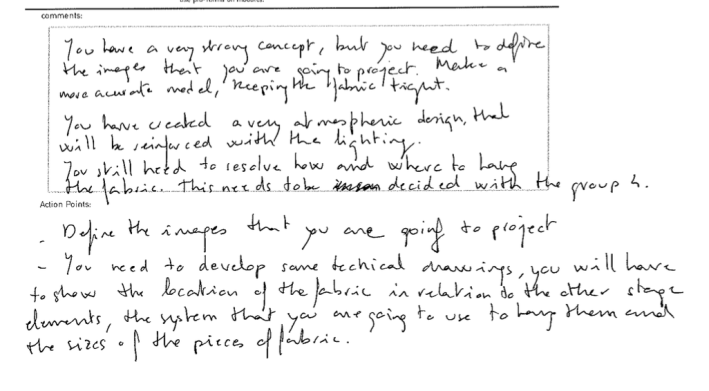 comments:
You have a very strong concept, but you need to define
the images that you are going to project. Make a
more acurate model, keeping the fabric tight.
You have created a very atmospheric design, that
will be reinforced with the lighting.
You still need to resolve how and where to hang
the fabric. This needs to be decided with the group 4.
Action Points:
- Define the images that you are going to project
- You need to develop some techical drawings, you will have
to show the location of the fabric in relation to the other stage
elements, the system that you are going to use to hang them and
the sizes of the pieces of fabric.